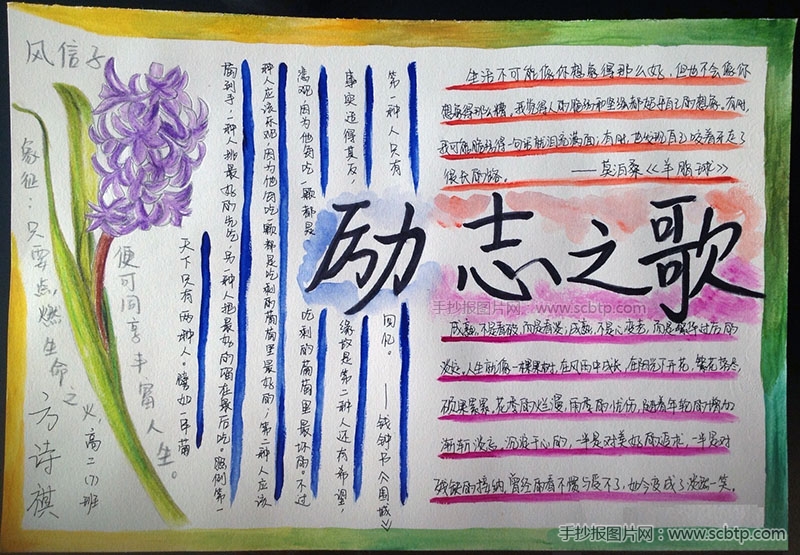 风信子
象征：只要点燃生命之火，
便可同享丰富人生。
高二(7)班
方诗祺
天下只有两种人。譬如一串葡
萄到手，一种人挑最好的先吃，另一种人把最好的留在最后吃。照例第一
种人应该乐观，因为他每吃一颗都是吃剩的葡萄里最好的；第二种人应该
悲观，因为他每吃一颗都是
吃剩的葡萄里最坏的。不过
事实适得其反，
缘故是第二种人还有希望，
第一种人只有
回忆。——钱钟书《围城》
励志之歌
生活不可能像你想象得那么好，但也不会像你
想象得那么糟。我觉得人的脆弱和坚强都超乎自己的想象。有时，
我可能脆弱得一句话就泪流满面；有时，也发现自己咬着牙走了
很长的路。——莫泊桑《羊脂球》
成熟，不是看破，而是看淡；成熟，不是心变老，而是繁华过后的
淡定。人生就像一棵果树，在风雨中成长，在阳光下开花，繁花落尽，
硕果累累。花季的烂漫，雨季的忧伤，随着年轮的增加
渐渐淡忘，沉淀于心的，一半是对美好的追求，一半是对
残缺的接纳。曾经的看不惯与受不了，如今变成了淡然一笑。
手抄报图片网：www.scbtp.com
手抄报图片网：www.scbtp.com